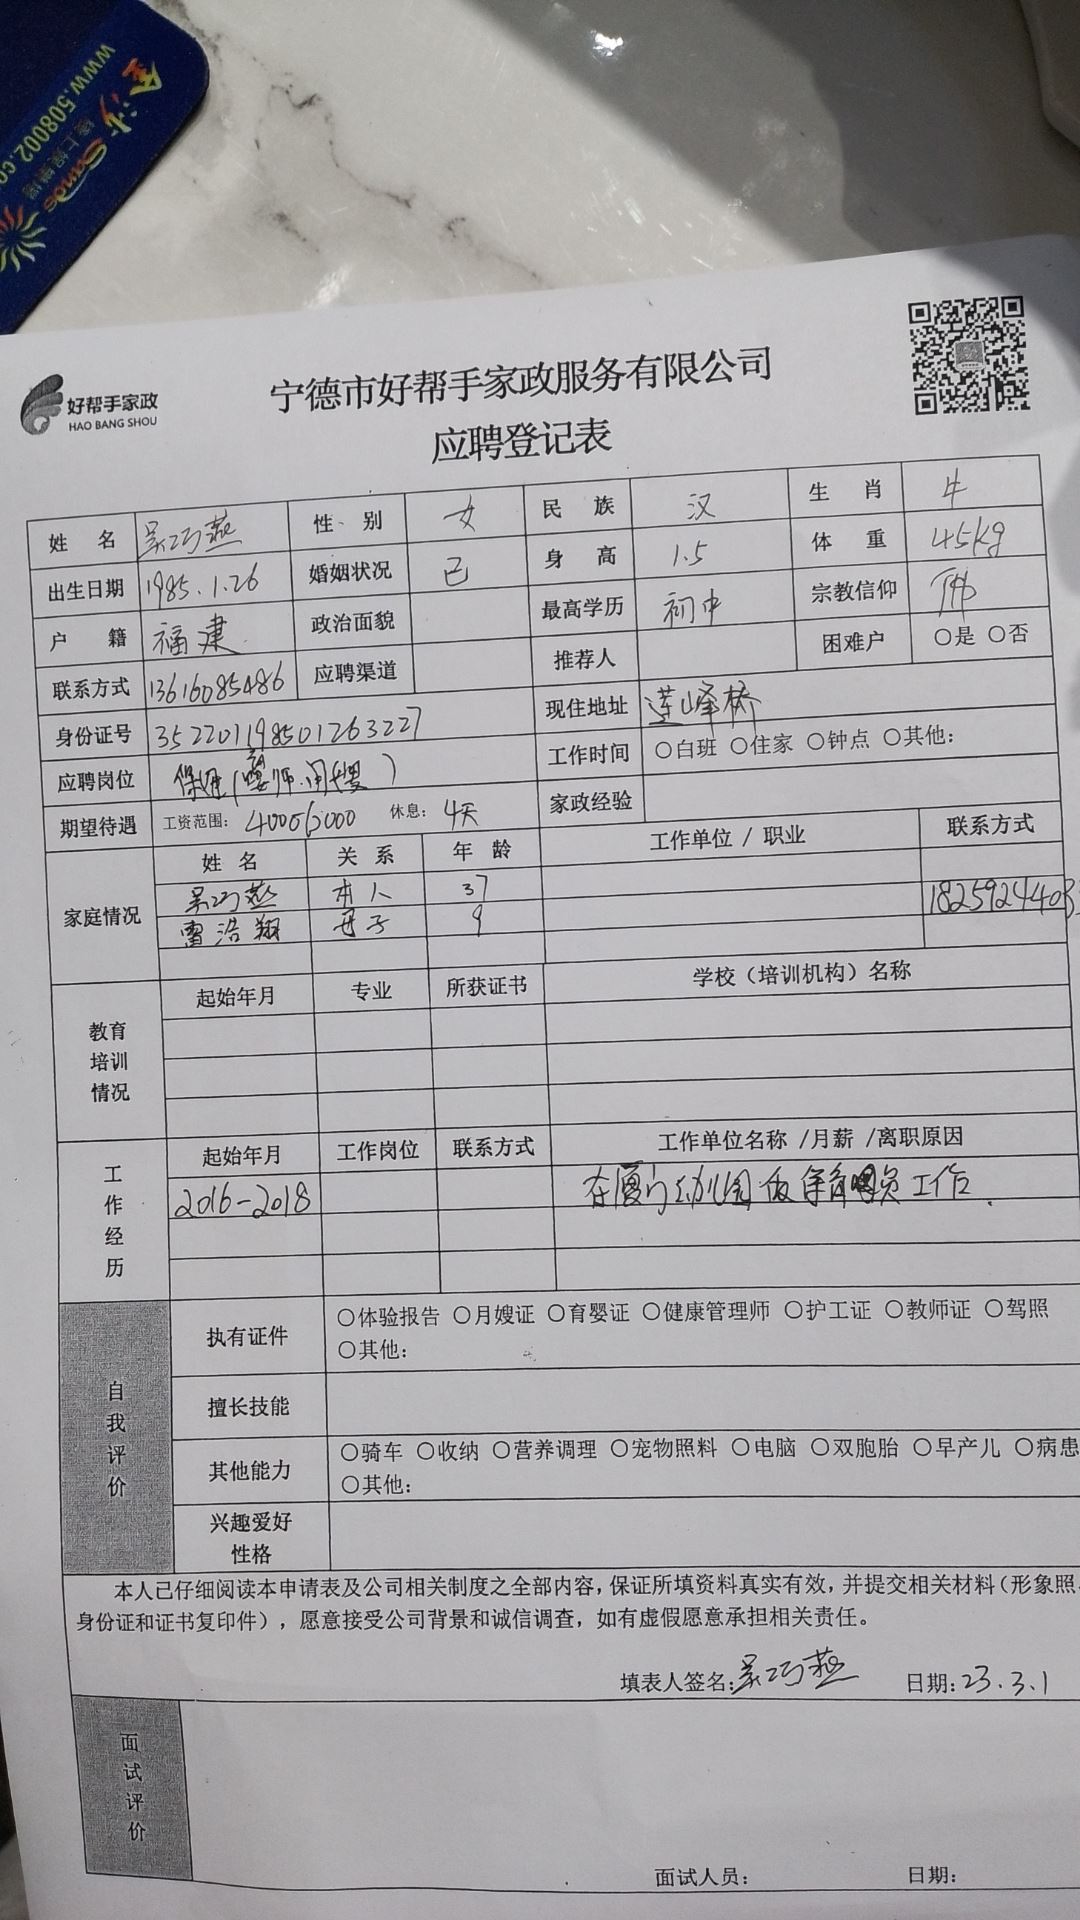 金沙 Sands
线上娱乐场
www.508002.co
好帮手家政
HAO BANG SHOU
宁德市好帮手家政服务有限公司
应聘登记表
姓名 吴巧燕 性别 女 民族 汉 生肖 牛
出生日期 1985.1.26 婚姻状况 已 身高 1.5 体重 45kg
户籍 福建 政治面貌 最高学历 初中 宗教信仰 佛
联系方式 13616085486 应聘渠道 推荐人 困难户 ○是 ○否
身份证号 352201198501263227 现住地址 莲峰桥
应聘岗位 工作时间 ○白班 ○住家 ○钟点 ○其他:
期望待遇 工资范围: 40006000 休息: 4天 家政经验
家庭情况 姓名 关系 年龄 工作单位 / 职业 联系方式
吴巧燕 本人 37 1825924403
雷浩翔 母子 9
教育培训情况 起始年月 专业 所获证书 学校（培训机构）名称
工作经历 起始年月 工作岗位 联系方式 工作单位名称 /月薪 /离职原因
2016-2018 在厦门幼儿园做保育员工作.
自我评价
执有证件 ○体验报告 ○月嫂证 ○育婴证 ○健康管理师 ○护工证 ○教师证 ○驾照
○其他:
擅长技能
其他能力 ○骑车 ○收纳 ○营养调理 ○宠物照料 ○电脑 ○双胞胎 ○早产儿 ○病患
○其他:
兴趣爱好
性格
本人已仔细阅读本申请表及公司相关制度之全部内容，保证所填资料真实有效，并提交相关材料（形象照、
身份证和证书复印件），愿意接受公司背景和诚信调查，如有虚假愿意承担相关责任。
填表人签名: 吴巧燕 日期: 23.3.1
面试评价
面试人员: 日期: